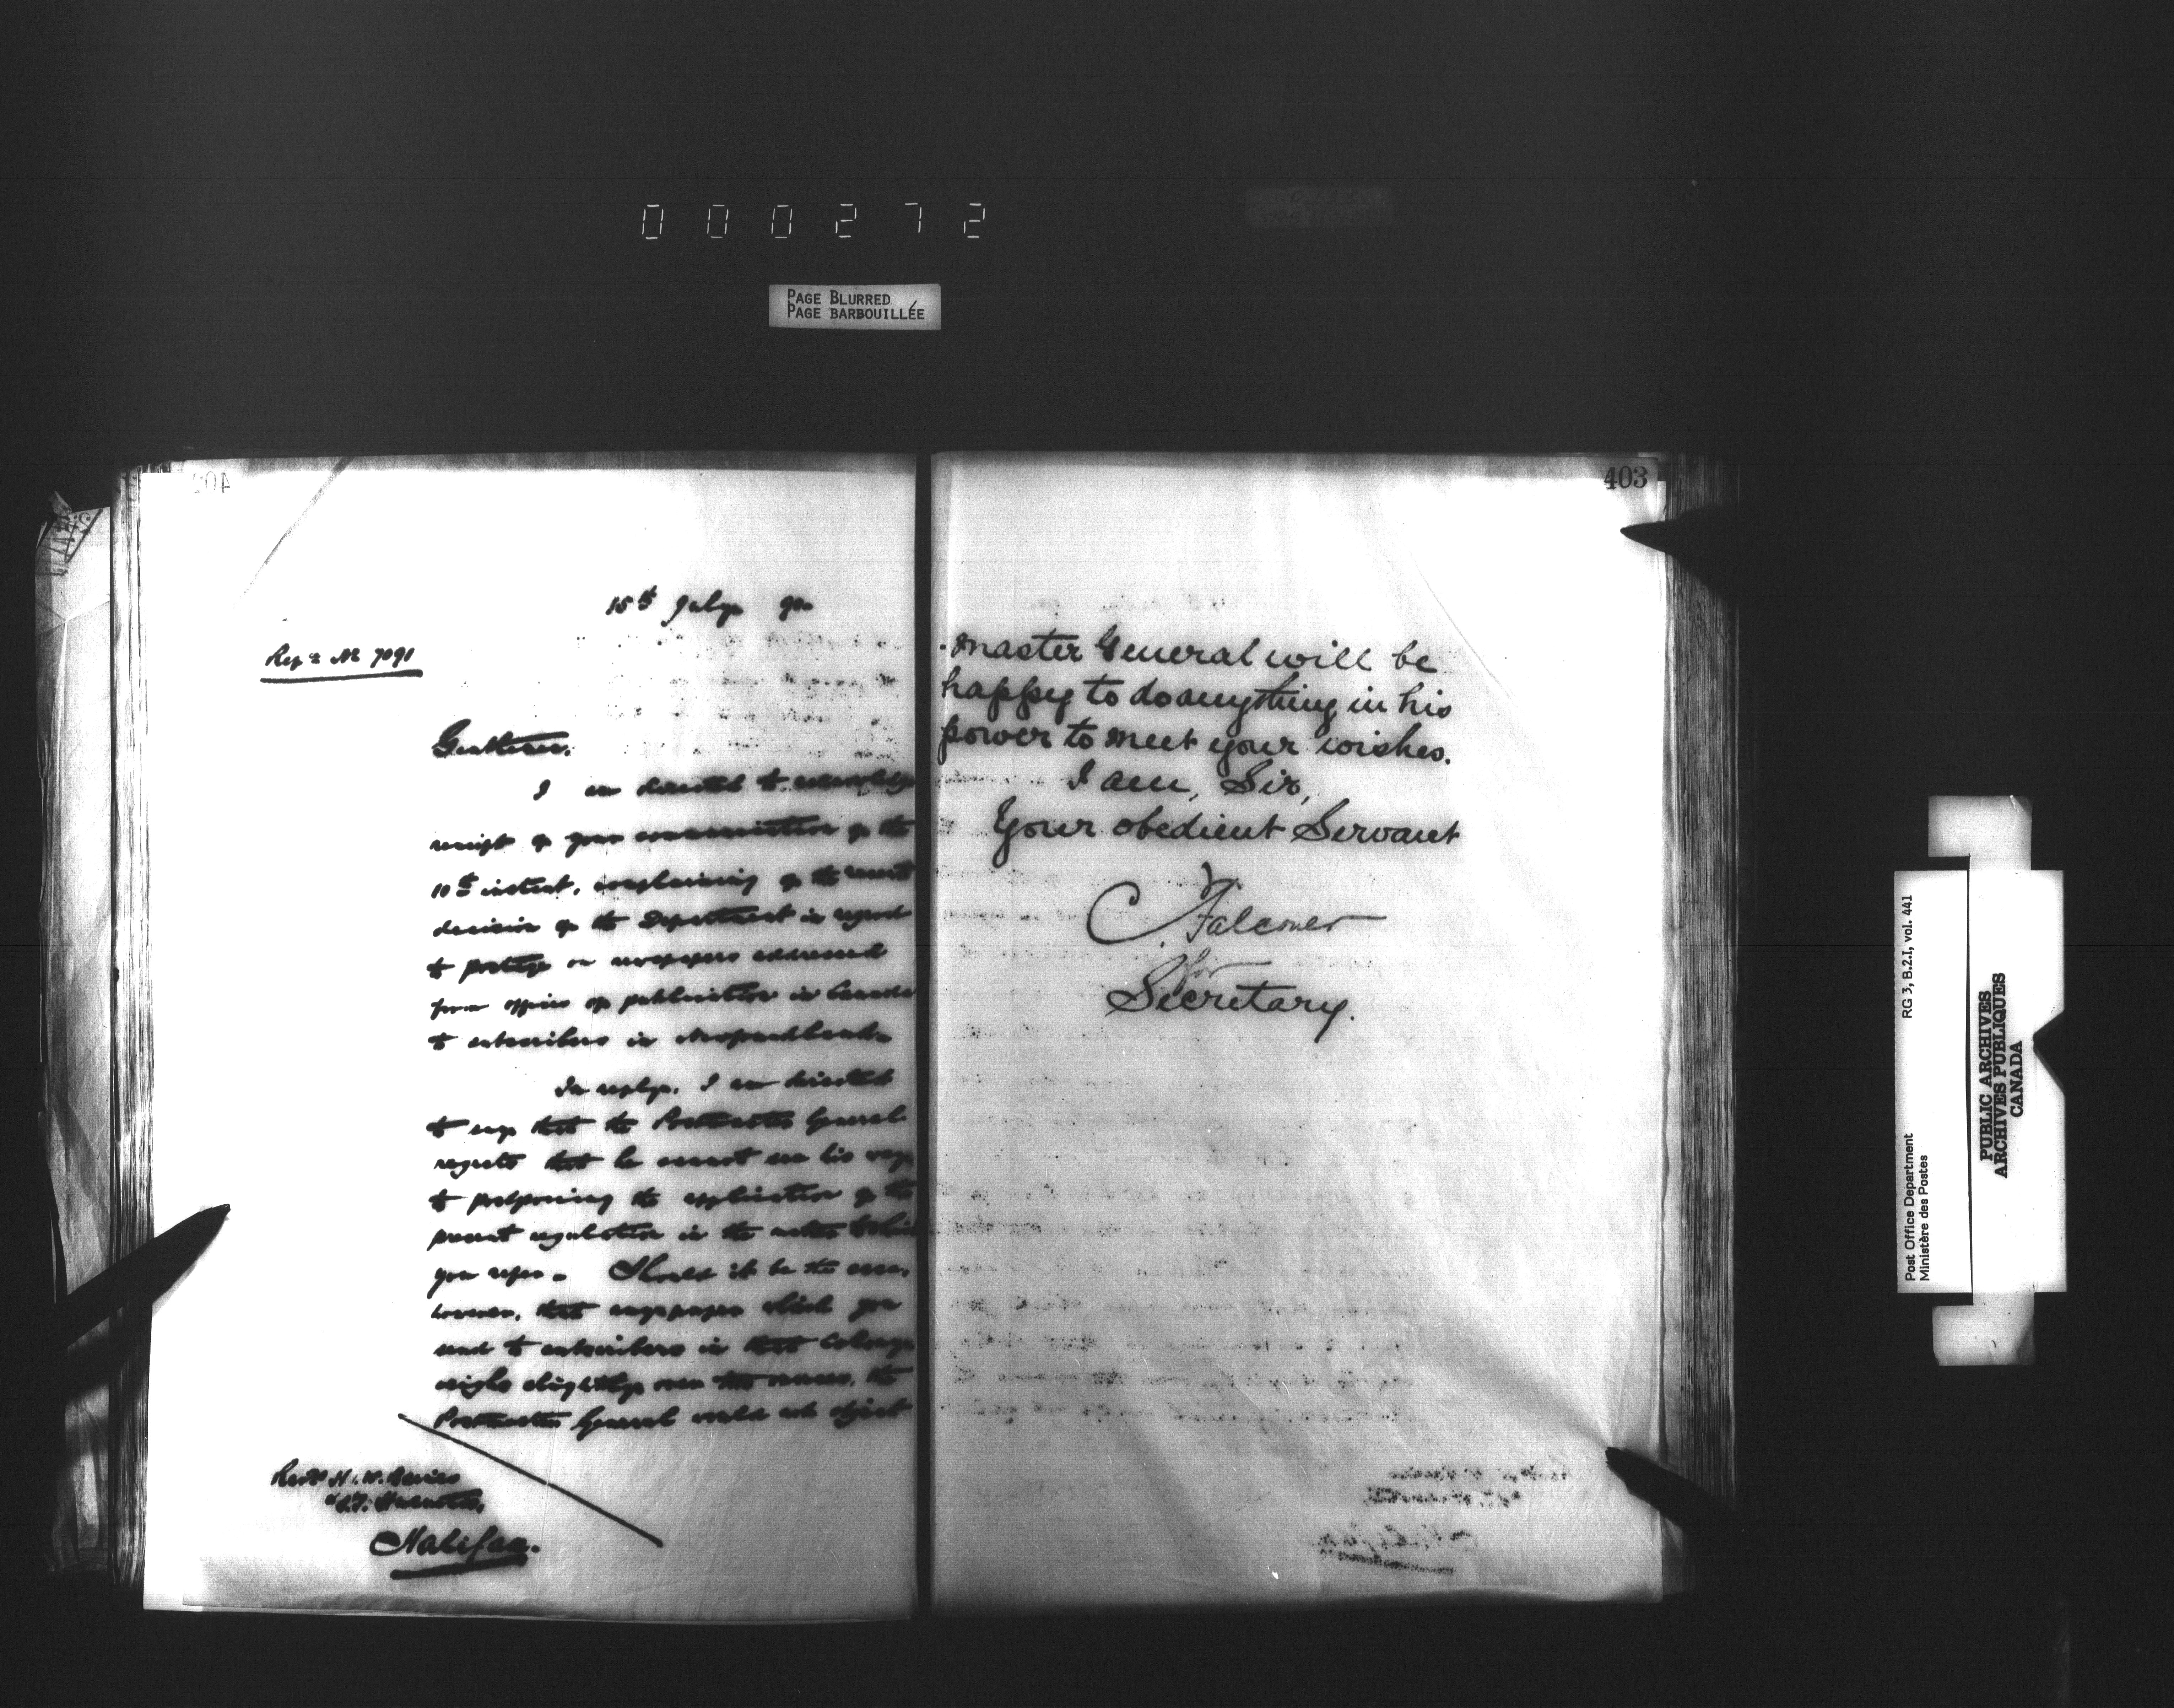 000272
PAGE BLURRED
PAGE BARBOUILLÉE
402
15th July 90
Ref. No 7091
Gentlemen,
I am directed to acknowledge
receipt of your communication of the
10th instant, complaining of the recent
decision of the Department in regard
to postage on newspapers addressed
from offices of publication in Canada
to subscribers in Newfoundland.
In reply, I am directed
to say that the Postmaster General
regrets that he cannot see his way
to postponing the application of the
present regulation in the matter to which
you refer. Should it be the case,
however, that any paper which you
send to subscribers in that Colony
weighs slightly over two ounces, the
Postmaster General would not object
Halifax.
403
master General will be
happy to do anything in his
power to meet your wishes.
I am, Sir,
Your obedient Servant
C. Falconer
for
Secretary.
Post Office Department
Ministère des Postes
RG 3, B.2.I, vol. 441
PUBLIC ARCHIVES
ARCHIVES PUBLIQUES
CANADA